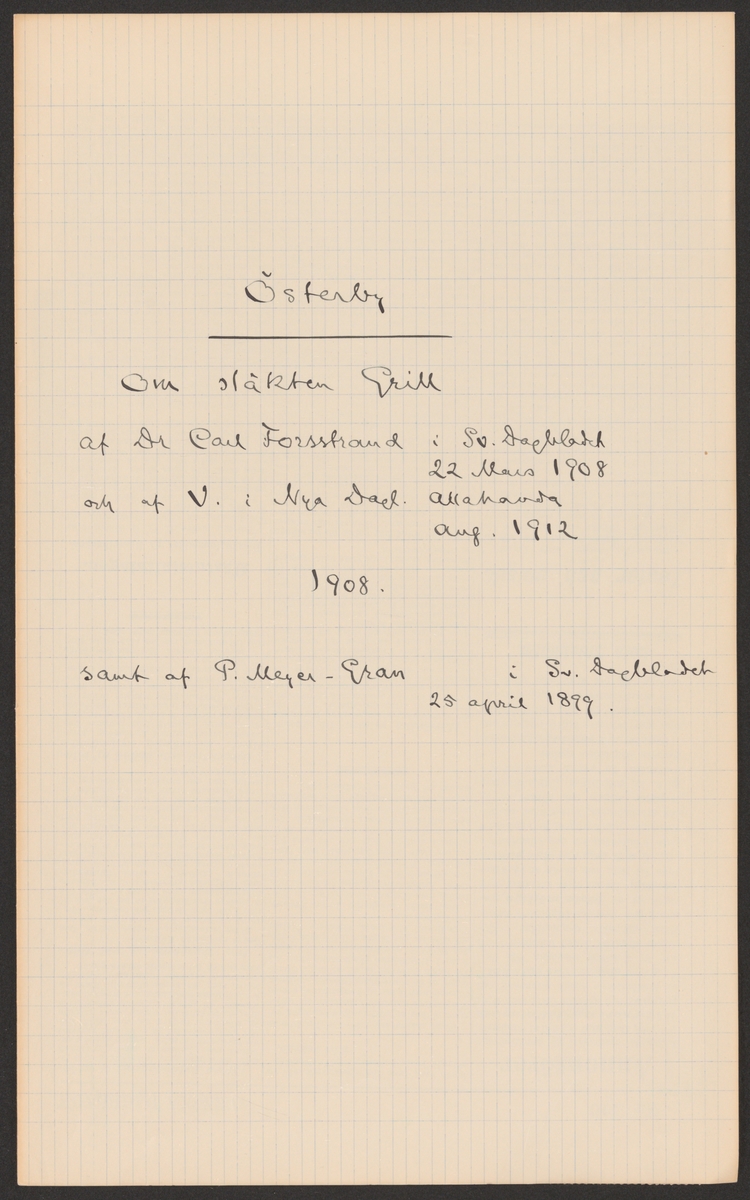 Österby
Om släkten Grill
af Dr Carl Forsstrand i Sv. Dagbladet
22 Mars 1908
och af V. i Nya Dagl. Allahanda
Aug. 1912
1908.
samt af P. Meyer-Gran i Sv. Dagbladet
25 april 1899.